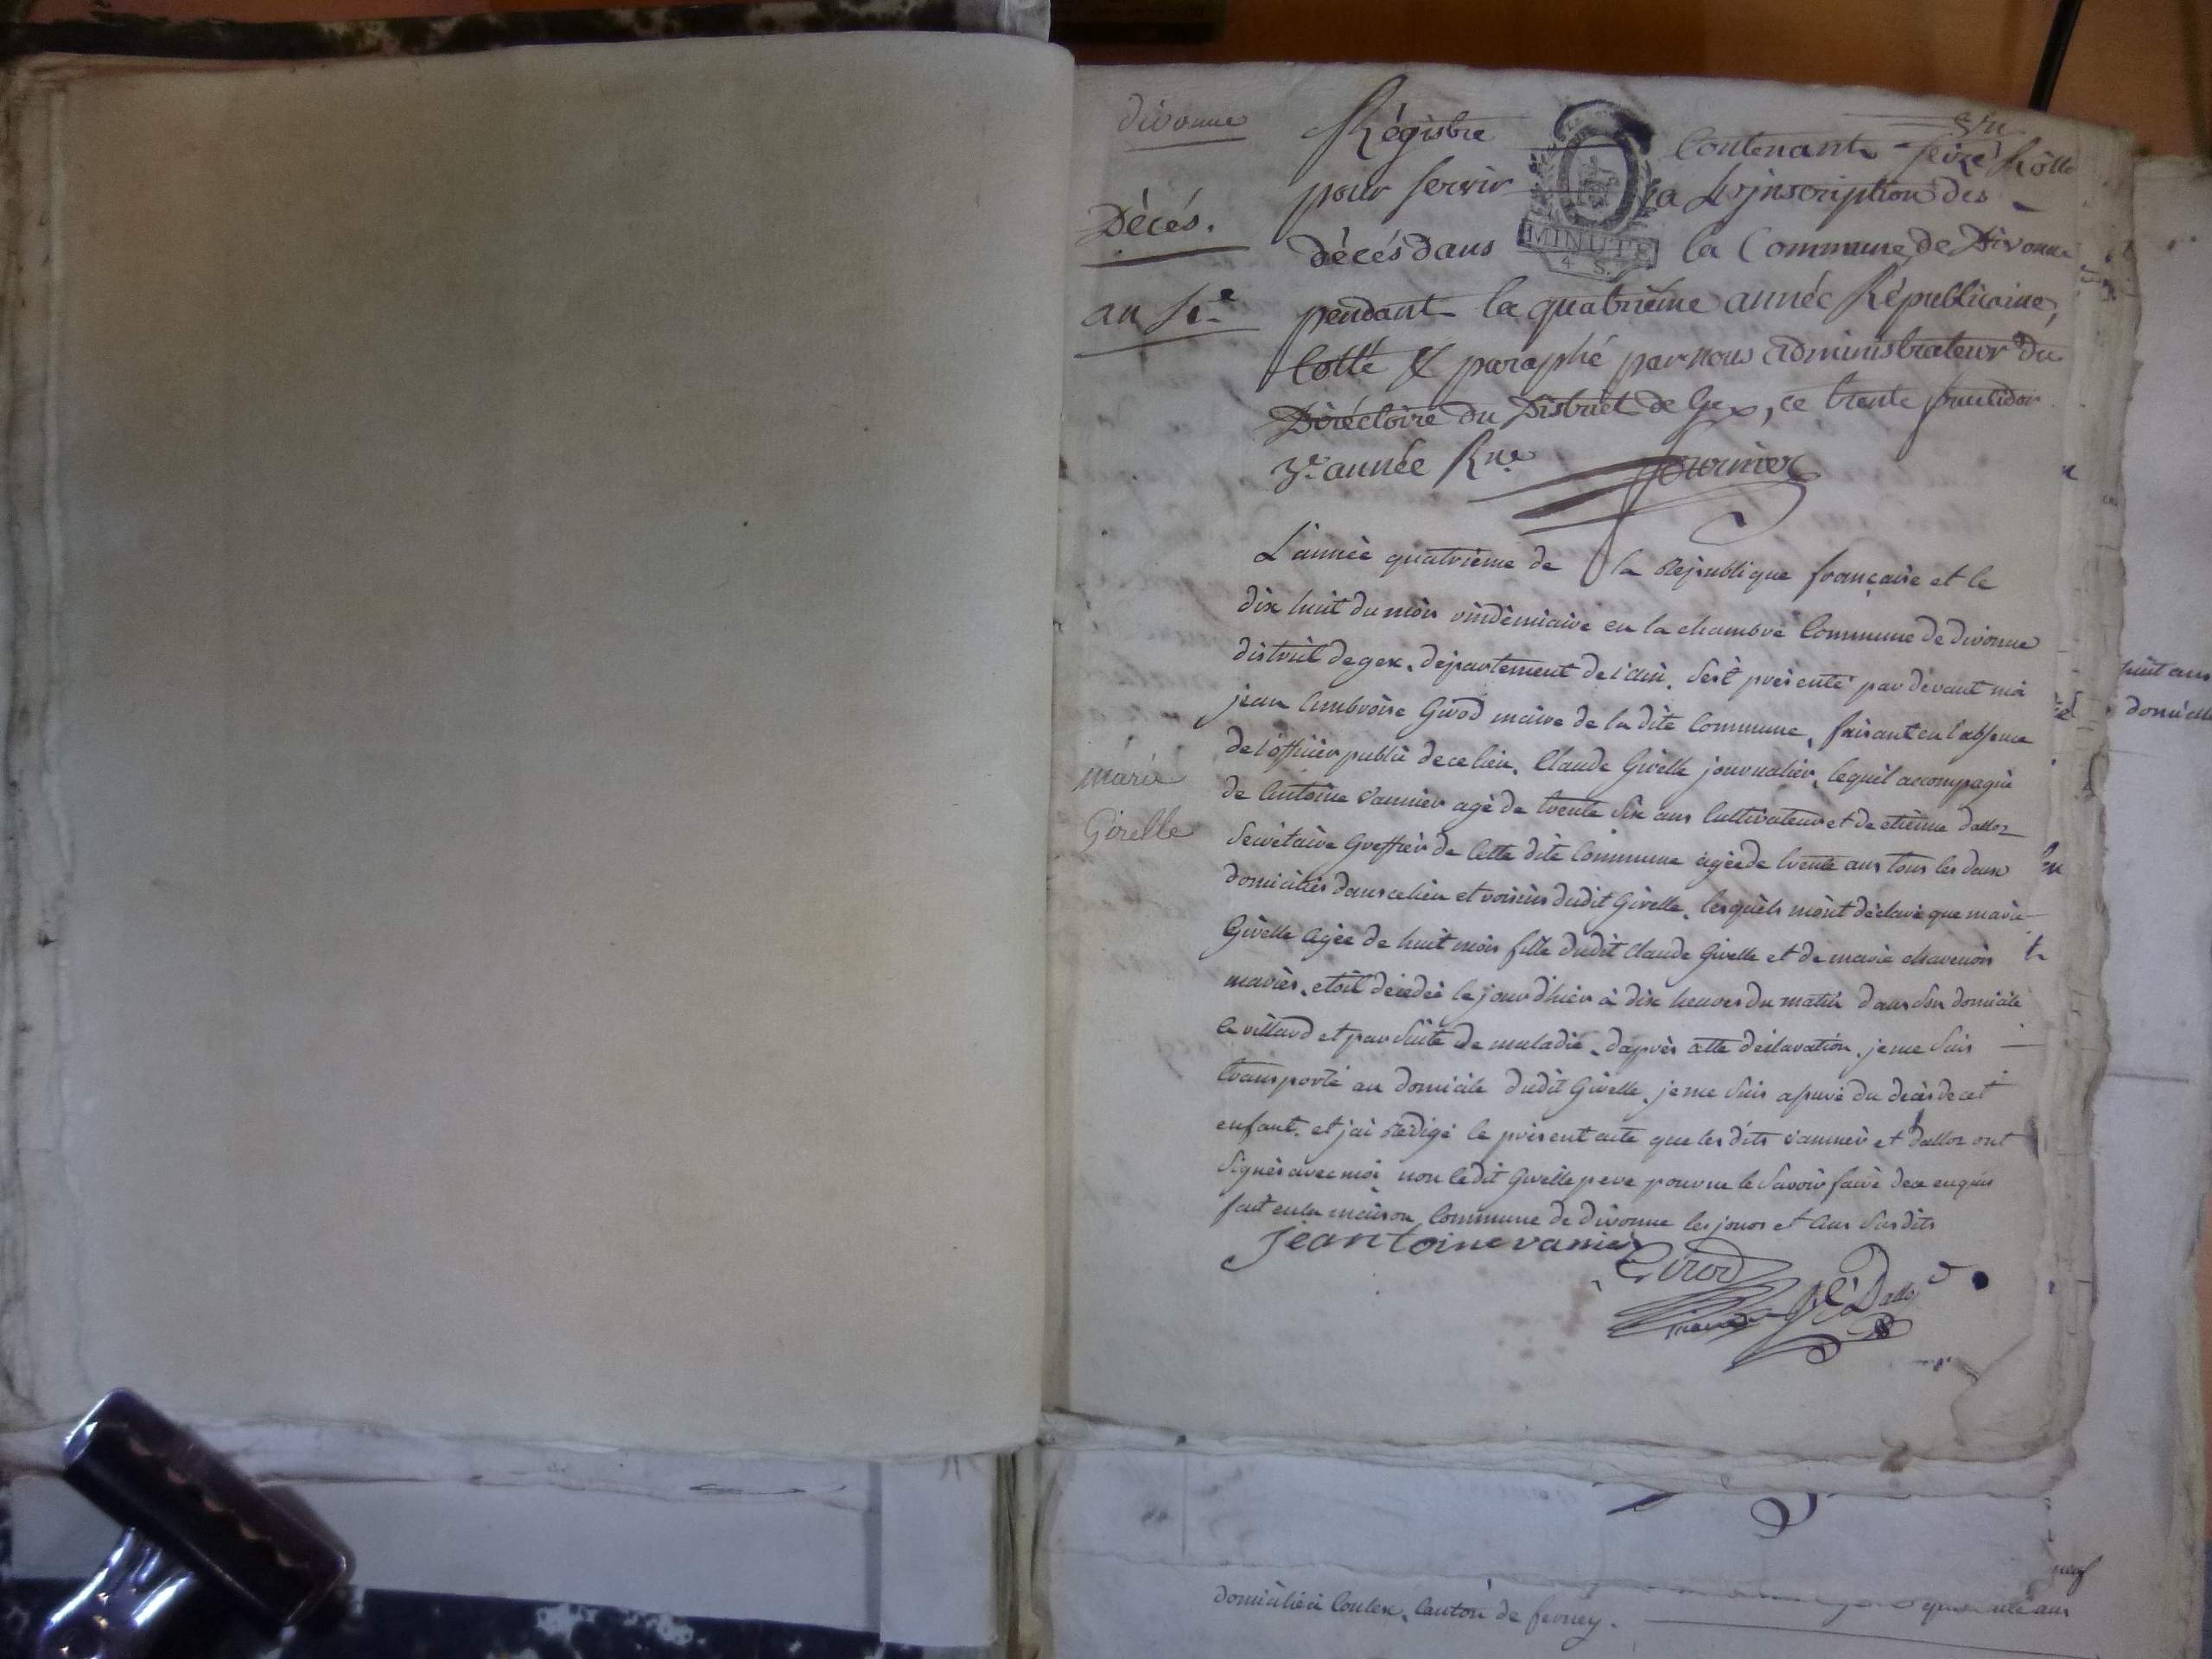 divonne
Décés.
an 4e
Régistre Contenant seize Rôlle
pour servir a L'jnscription des
décés dans la Commune de Divonne
MINUTE
4 S.
pendant la quatriéme année Républicaine,
Cotté & paraphé par nous administrateur du
Diréctoire du District de Gex, ce trente fructidor
3e année Rne
fournier
L'année quatrième de la République françaìse et le
dix huit du mois vindèmiaire en la chambre Commune de divonne
district de gex, département de l'ain, s'est présenté par dèvant moi
jean Ambroise Girod maire de la dite Commune, faisant en l'absence
de l'officier public de ce lieu, Claude Girelle journalier, lequel accompagné
de Antoine vannier agé de trente six ans Cultivateur et de etienne dalloz
Secrétaire Greffier de Cette dite Commune agée de trente ans tous les deux
domiciliés dans ce lieu et voisins dudit Girelle, lesquels m'ont déclaré que marie
Girelle agée de huit mois fille dudit Claude Girelle et de marie chavenois
mariés, etoit décèdée le jour d'hier à dix heures du matin dans son domicile
a villard et par suite de maladie, d'après cette déclaration, je me suis
transporté au domicile dudit Girelle, je me suis assuré du décès de cet
enfant, et j'ai Rédigé le présent acte que les dits vannier et dalloz ont
signés avec moi non le dit Girelle pere pour ne le savoir faire de ce enquis
fait en la maison Commune de divonne les jours et ans susdits
marie
Girelle
jeantoine vanier
Girod
Dalloz
huit ans
domicilié
neuf
domicilié à Coulex, Canton de ferney.
ans